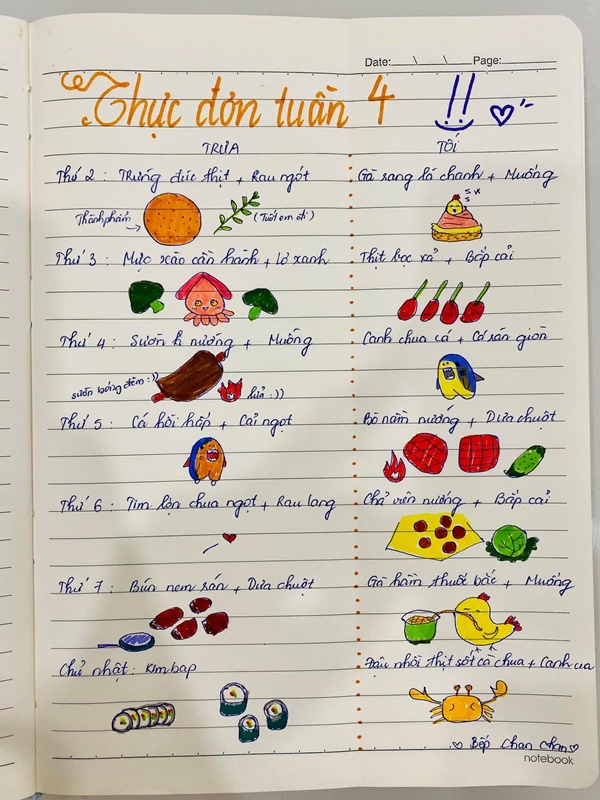 Date: \ \ Page:
Thực đơn tuần 4 !!
TRƯA TỐI
Thứ 2 : Trứng đúc thịt + Rau ngót Gà rang lá chanh + Muống
Thành phẩm (Tươi em ơi)
Thứ 3 : Mực xào cần hành + lơ xanh Thịt bọc xả + Bắp cải
Thứ 4 : Sườn nướng + Muống Canh chua cá + Cá rán giòn
sườn :)) lửa :))
Thứ 5 : Cá hồi hấp + Cải ngọt Bò nầm nướng + Dưa chuột
Thứ 6 : Tim lợn chua ngọt + Rau lang Chả viên nướng + Bắp cải
Thứ 7 : Bún nem rán + Dưa chuột Gà hầm thuốc bắc + Muống
Chủ nhật : Kimbap Đậu nhồi thịt sốt cà chua + Canh cua
Bếp Chan Chan
notebook